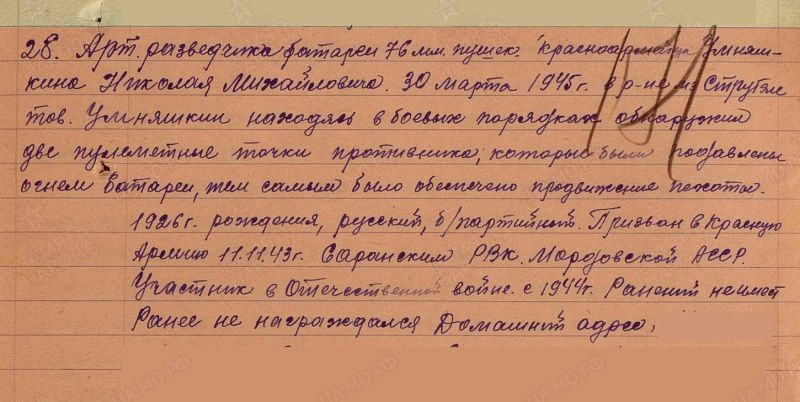 28. Арт. разведчика батареи 76 мм. пушек. красноармейца Умняш-
кина Николая Михайловича. 30 марта 1945 г. в р-не м. Струбле
тов. Умняшкин находясь в боевых порядках обнаружил
две пулеметные точки противника, которые были подавлены
огнем батареи, тем самым было обеспечено продвижение пехоты.
1926 г. рождения, русский, б/партийный. Призван в Красную
Армию 11.11.43 г. Саранским РВК. Мордовской АССР.
Участник в Отечественной войне с 1944 г. Ранений не имеет
Ранее не награждался Домашний адрес: